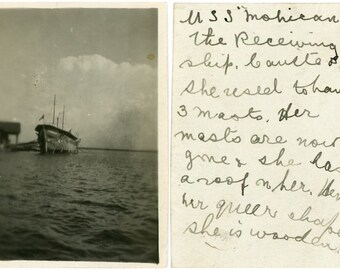 USS "Mohican
the Receiving
ship. Caulte
She used to hav
3 masts. Her
masts are now
gone & she has
a roof on her.
her queer shape
she is wooden.